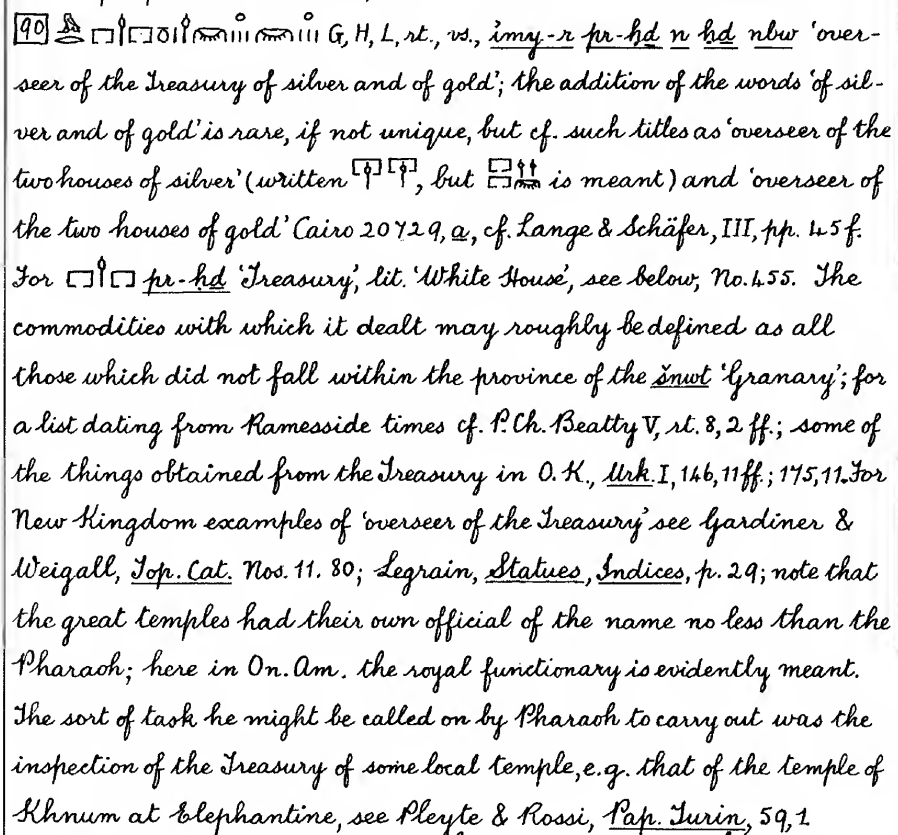 90 G, H, L, rt., vs., ỉmy-r pr-ḥḏ n ḥḏ nbw ‘over-
seer of the Treasury of silver and of gold’; the addition of the words ‘of sil-
ver and of gold’ is rare, if not unique, but cf. such titles as ‘overseer of the
two houses of silver’ (written , but is meant) and ‘overseer of
the two houses of gold’ Cairo 20729, a, cf. Lange & Schäfer, III, pp. 45 f.
For pr-ḥḏ ‘Treasury’, lit. ‘White House’, see below, No. 455. The
commodities with which it dealt may roughly be defined as all
those which did not fall within the province of the šnwt ‘Granary’; for
a list dating from Ramesside times cf. P. Ch. Beatty V, rt. 8, 2 ff.; some of
the things obtained from the Treasury in O. K., Urk. I, 146, 11 ff.; 175, 11. For
New Kingdom examples of ‘overseer of the Treasury’ see Gardiner &
Weigall, Top. Cat. Nos. 11. 80; Legrain, Statues, Indices, p. 29; note that
the great temples had their own official of the name no less than the
Pharaoh; here in On. Am. the royal functionary is evidently meant.
The sort of task he might be called on by Pharaoh to carry out was the
inspection of the Treasury of some local temple, e.g. that of the temple of
Khnum at Elephantine, see Pleyte & Rossi, Pap. Turin, 59, 1